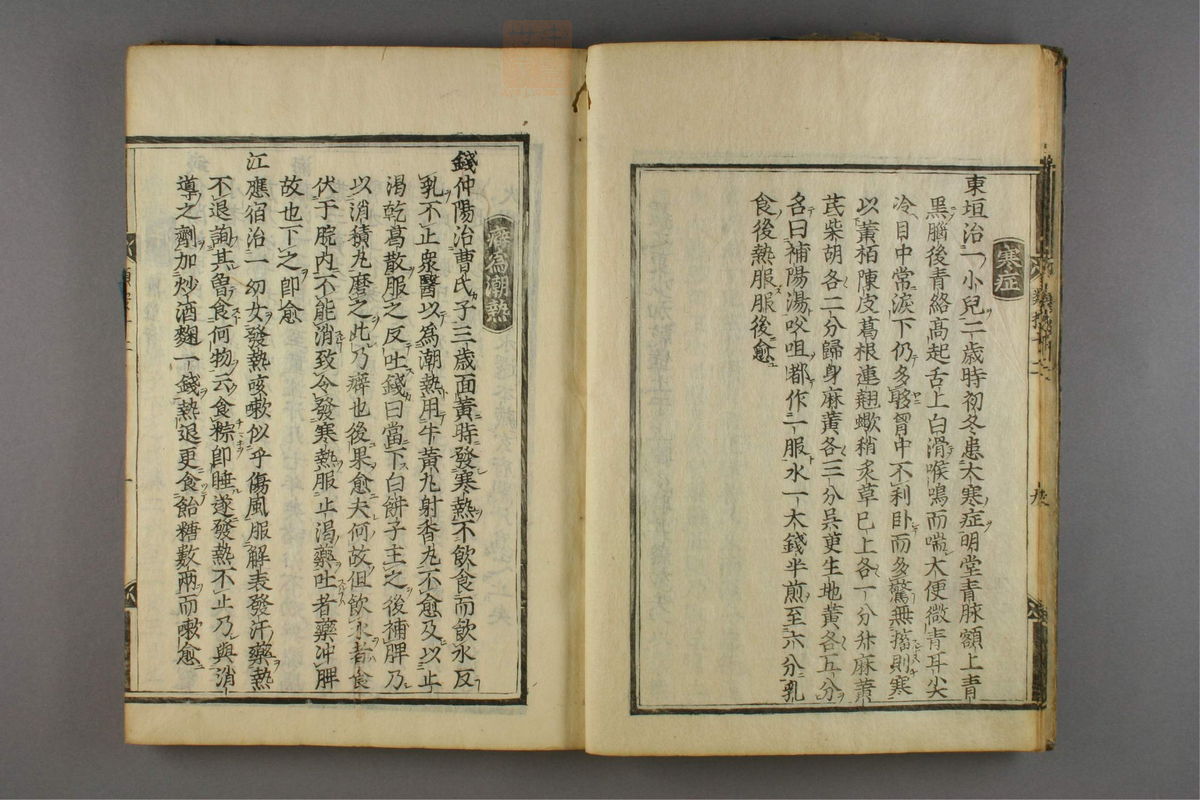 寒症
東垣治一小兒二歲時初冬患大寒症明堂青脉額上青
黑腦後青絡高起舌上白滑喉鳴而喘大便微青耳尖
冷目中常淚下仍多眵胷中不利卧而多驚無搐則寒
以黃栢陳皮葛根連翹蠍稍炙草已上各一分升麻黃
芪柴胡各二分歸身麻黃各三分吳茰生地黃各五分
名曰補陽湯㕮咀都作一服水一大錢半煎至六分乳
食後熱服服後愈
癖為潮熱
錢仲陽治曹氏子三歲面黃時發寒熱不飲食而飲水反
乳不止衆醫以為潮熱用牛黃丸射香丸不愈及以止
渴乾葛散服之反吐錢曰當下白餅子主之後補脾乃
以消積丸磨之此乃癖也後果愈夫何故但飲水者食
伏于脘內不能消致令發寒熱服止渴藥吐者藥冲脾
故也下之即愈
江應宿治一幼女發熱咳嗽似乎傷風服解表發汗藥熱
不退詢其曾食何物云食粽即睡遂發熱不止乃與消
導之劑加炒酒麴一錢熱退更食飴糖數兩而嗽愈